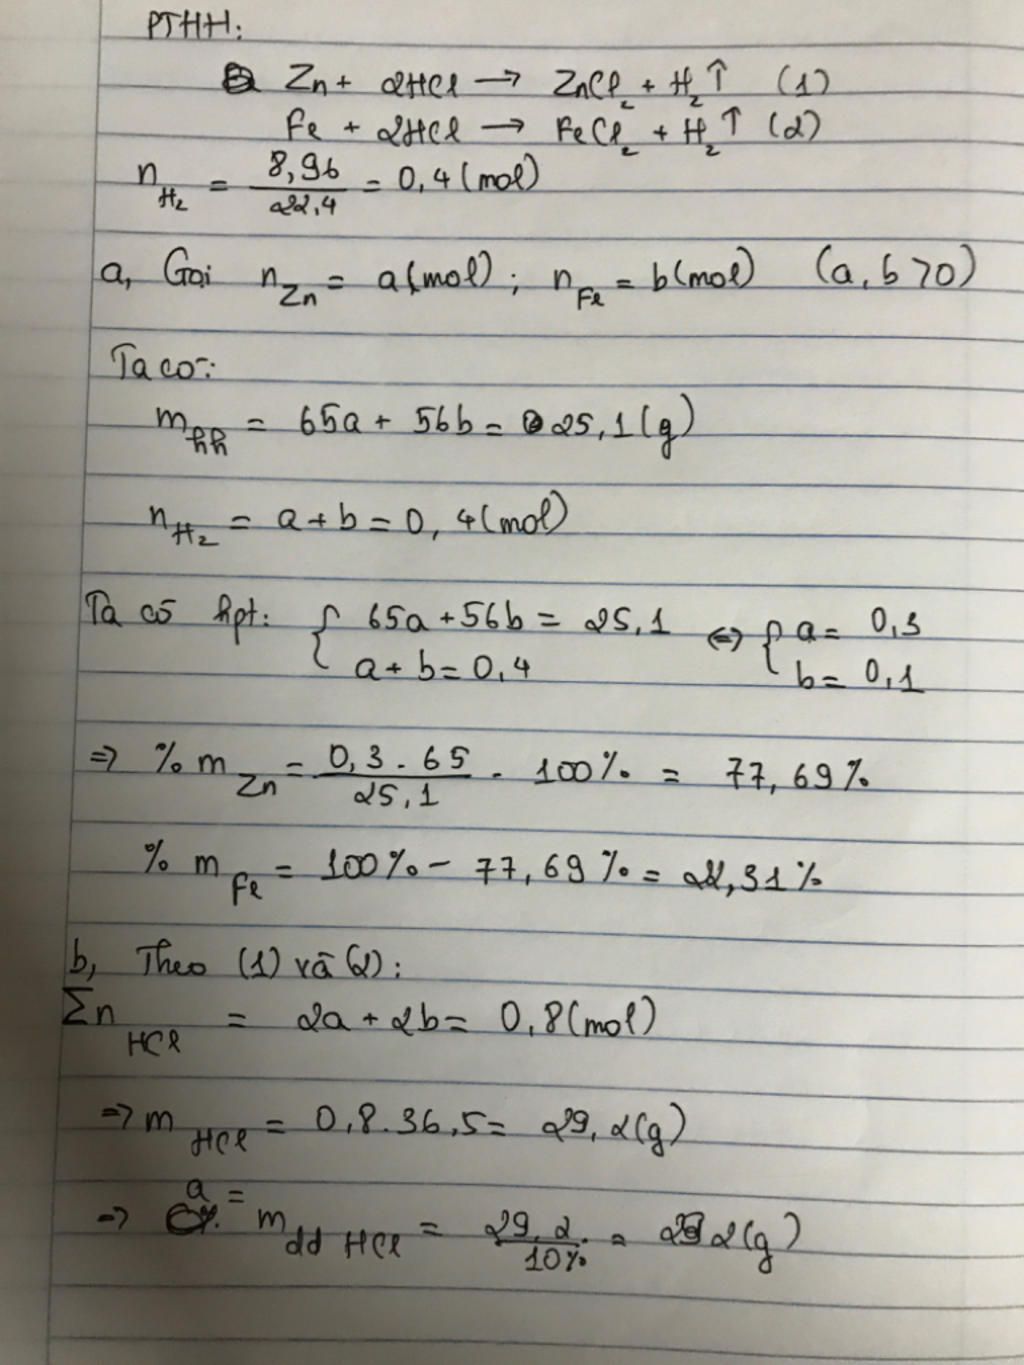 PTHH:
Zn + 2HCl → ZnCl₂ + H₂↑ (1)
Fe + 2HCl → FeCl₂ + H₂↑ (2)
n_H₂ = 8,96/22,4 = 0,4 (mol)
a, Gọi n_Zn = a(mol); n_Fe = b(mol) (a, b >0)
Ta có:
m_hh = 65a + 56b = 25,1 (g)
n_H₂ = a + b = 0,4 (mol)
Ta có hpt: { 65a + 56b = 25,1 ⇔ { a = 0,3
a + b = 0,4 b = 0,1
⇒ % m_Zn = 0,3 . 65/25,1 . 100% = 77,69%
% m_Fe = 100% - 77,69% = 22,31%
b, Theo (1) và (2):
Σn_HCl = 2a + 2b = 0,8 (mol)
⇒ m_HCl = 0,8.36,5 = 29,2 (g)
⇒ a = m_dd HCl = 29,2/10% = 292 (g)